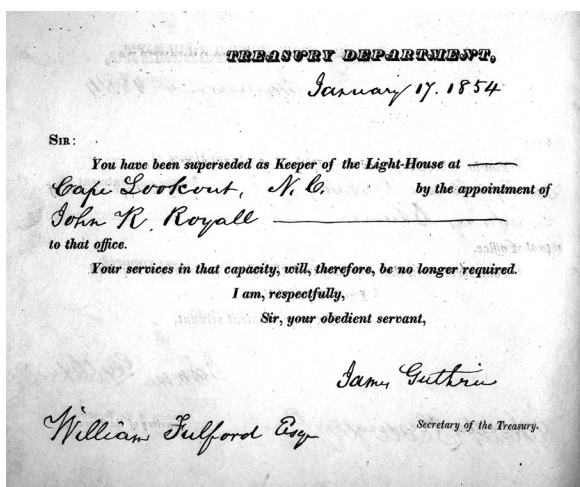 TREASURY DEPARTMENT,
January 17. 1854
SIR:
You have been superseded as Keeper of the Light-House at
Cape Lookout, N. C. by the appointment of
John R. Royall
to that office.
Your services in that capacity, will, therefore, be no longer required.
I am, respectfully,
Sir, your obedient servant,
James Guthrie
Secretary of the Treasury.
William Fulford Esqr